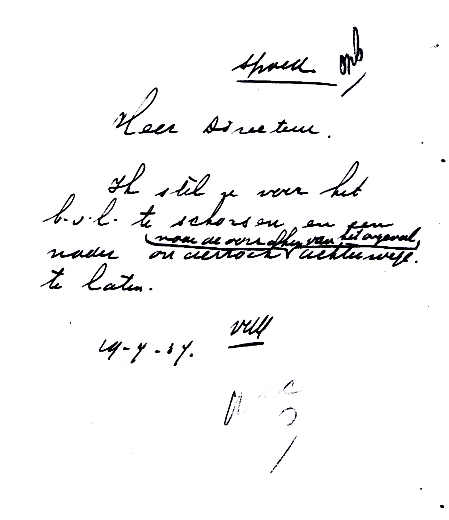 spoed.
Heer Directeur.
Ik stel u voor het
b.v.l. te schorsen en een
naar de oorzaken van het ongeval
nader onderzoek achterwege
te laten.
19-7-37.